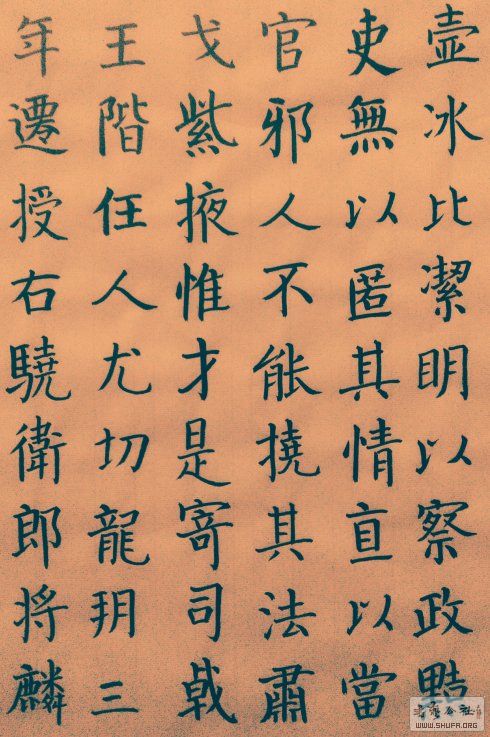 壺冰比潔明以察政黠
吏無以匿其情直以當
官邪人不能撓其法肅
戈紫掖惟才是寄司戟
王階任人尤切龍朔三
年遷授右驍衛郎將麟
WWW.SHUFA.ORG